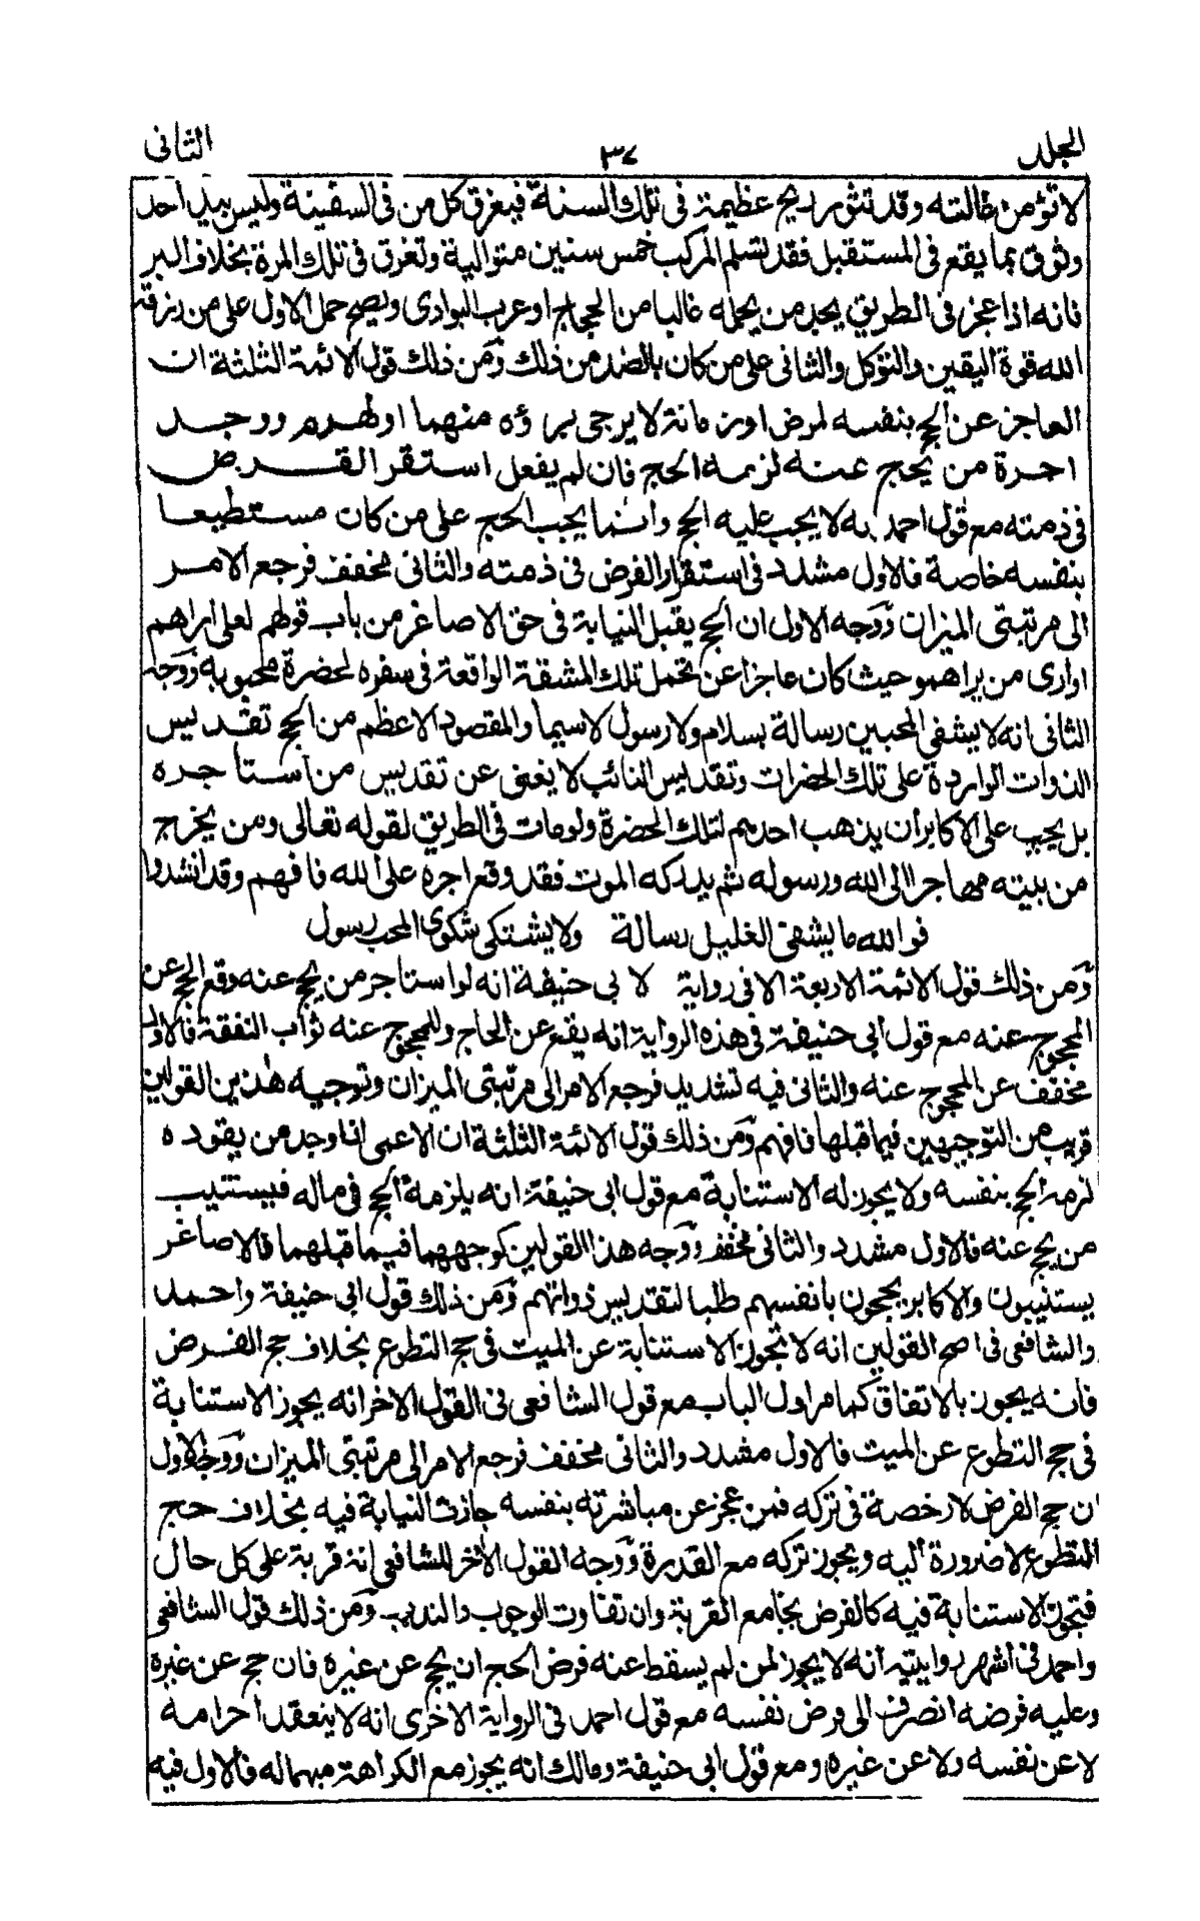 المجلد
٣٧
الثانى
لا تؤمن غائلته وقد تثور ريح عظيمة فى تلك السنة فيغرق كل من فى السفينة وليس بيد احد
وثوق بما يقع فى المستقبل فقد تسلم المركب خمس سنين متوالية وتغرق فى تلك المرة بخلاف البر
فانه اذا عجز فى الطريق يجد من يحمله غالبا من الحجاج او عرب البوادى ويصح حمل الاول على من رزقه
الله قوة اليقين والتوكل والثانى على من كان بالضد من ذلك ومن ذلك قول الائمة الثلثة ان
العاجز عن الحج بنفسه لمرض او زمانة لا يرجى برؤه منهما او لهرم ووجد
اجرة من يحج عنه لزمه الحج فان لم يفعل استقر الفرض
فى ذمته مع قول احمد به لا يجب عليه الحج وانما يجب الحج على من كان مستطيعا
بنفسه خاصة فالاول مشدد فى استقرار الفرض فى ذمته والثانى مخفف فرجع الامر
الى مرتبتى الميزان ووجه الاول ان الحج يقبل النيابة فى حق الاصاغر من باب قولهم لعلى اراهم
او ارى من يراهمو حيث كان عاجزا عن تحمل تلك المشقة الواقعة فى سفره لحضرة محبوبه ووجه
الثانى انه لا يشفي المحبين رسالة بسلام ولا رسول لاسيما والمقصود الاعظم من الحج تقديس
الذوات الواردة على تلك الحضرات وتقديس النائب لا يغنى عن تقديس من استاجره
بل يجب على الاكابر ان يذهب احدهم لتلك الحضرة ولو مات فى الطريق لقوله تعالى ومن يخرج
من بيته مهاجرا الى الله ورسوله ثم يدركه الموت فقد وقع اجره على الله فافهم وقد انشدوا
فوالله ما يشفى الغليل رسالة ولا يشتكى شكوى المحب رسول
ومن ذلك قول الائمة الاربعة الا فى رواية لابى حنيفة انه لو استاجر من يحج عنه وقع الحج عن
المحجوج عنه مع قول ابى حنيفة فى هذه الرواية انه يقع عن الحاج وللمحجوج عنه ثواب النفقة فالاول
مخفف عن المحجوج عنه والثانى فيه تشديد فرجع الامر الى مرتبتى الميزان وتوجيه هذين القولين
قريب من التوجيهين فيما قبلها فافهم ومن ذلك قول الائمة الثلثة ان الاعمى اذا وجد من يقوده
لزمه الحج بنفسه ولا يجوز له الاستنابة مع قول ابى حنيفة انه يلزمه الحج فى ماله فيستنيب
من يحج عنه فالاول مشدد والثانى مخفف ووجه هذا القولين كوجههما فيما قبلهما فالاصاغر
يستنيبون والاكابر يحجون بانفسهم طلبا لتقديس ذواتهم ومن ذلك قول ابى حنيفة واحمد
والشافعى فى اصح القولين انه لا تجوز الاستنابة عن الميت فى حج التطوع بخلاف حج الفرض
فانه يجوز بالاتفاق كما مر اول الباب مع قول الشافعى فى القول الاخر انه يجوز الاستنابة
فى حج التطوع عن الميت فالاول مشدد والثانى مخفف فرجع الامر الى مرتبتى الميزان ووجه الاول
ان حج الفرض لا رخصة فى تركه فمن عجز عن مباشرته بنفسه جازت النيابة فيه بخلاف حج
التطوع لا ضرورة اليه ويجوز تركه مع القدرة ووجه القول الأخر للشافعى انه قربة على كل حال
فتجوز الاستنابة فيه كالفرض بجامع القربة وان تفاوت الوجوب والندب ومن ذلك قول الشافعى
واحمد فى اشهر روايتيه انه لا يجوز لمن لم يسقط عنه فرض الحج ان يحج عن غيره فان حج عن غيره
وعليه فرضه انصرف الى فرض نفسه مع قول احمد فى الرواية الاخرى انه لا ينعقد احرامه
لا عن نفسه ولا عن غيره ومع قول ابى حنيفة ومالك انه يجوز مع الكراهة مبهماله فالاول فيه